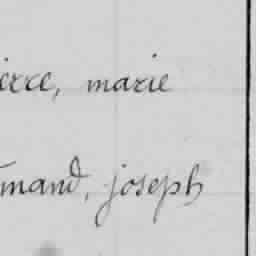 ierre, marie
mand, joseph